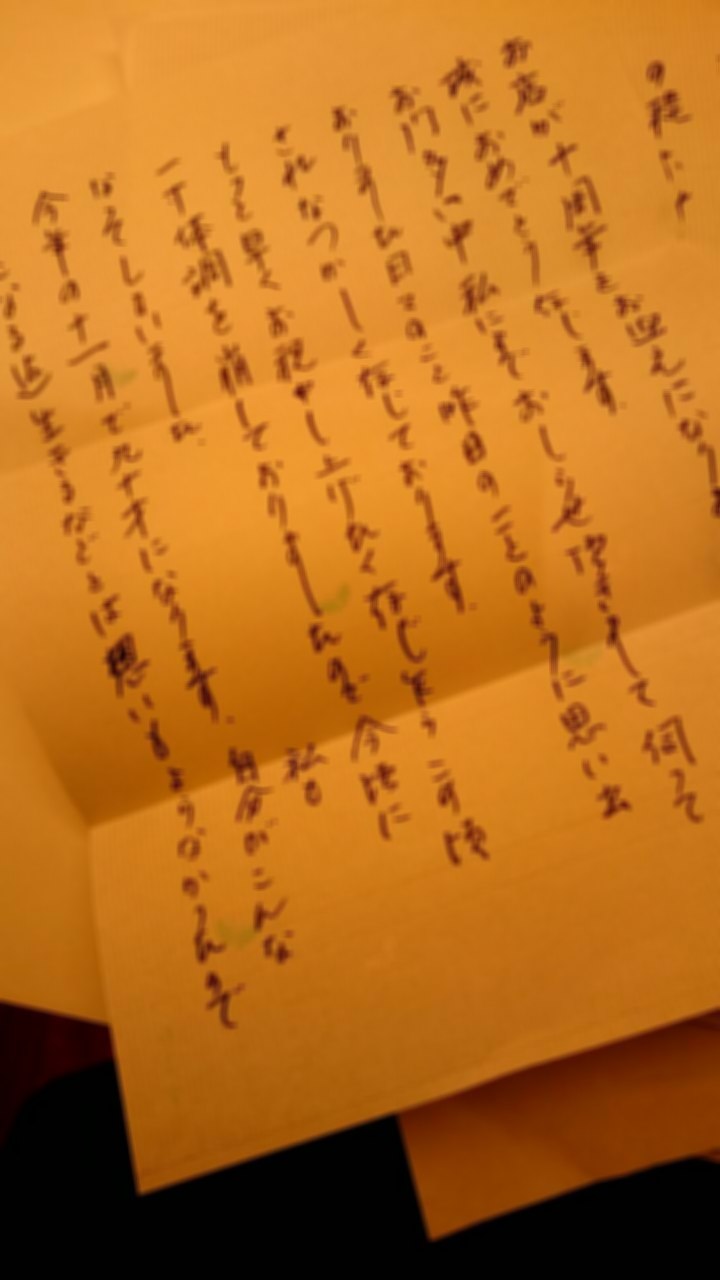 お店が十周年をお迎えになりま
誠におめでとう存じます。
お門多い中 私にまで おしらせ頂きまして 伺って
おりました日でのこと 昨日のことのように思い出
され なつかしく存じております。
もっと早くお祝申し上げたく存じ乍ら この頃
一寸体調を崩しておりましたので 今頃に
なってしまいました。 私も
今年の十一月で九十才になります。 自分がこんな
になる迄生きるなどとは思いもよりなかったので